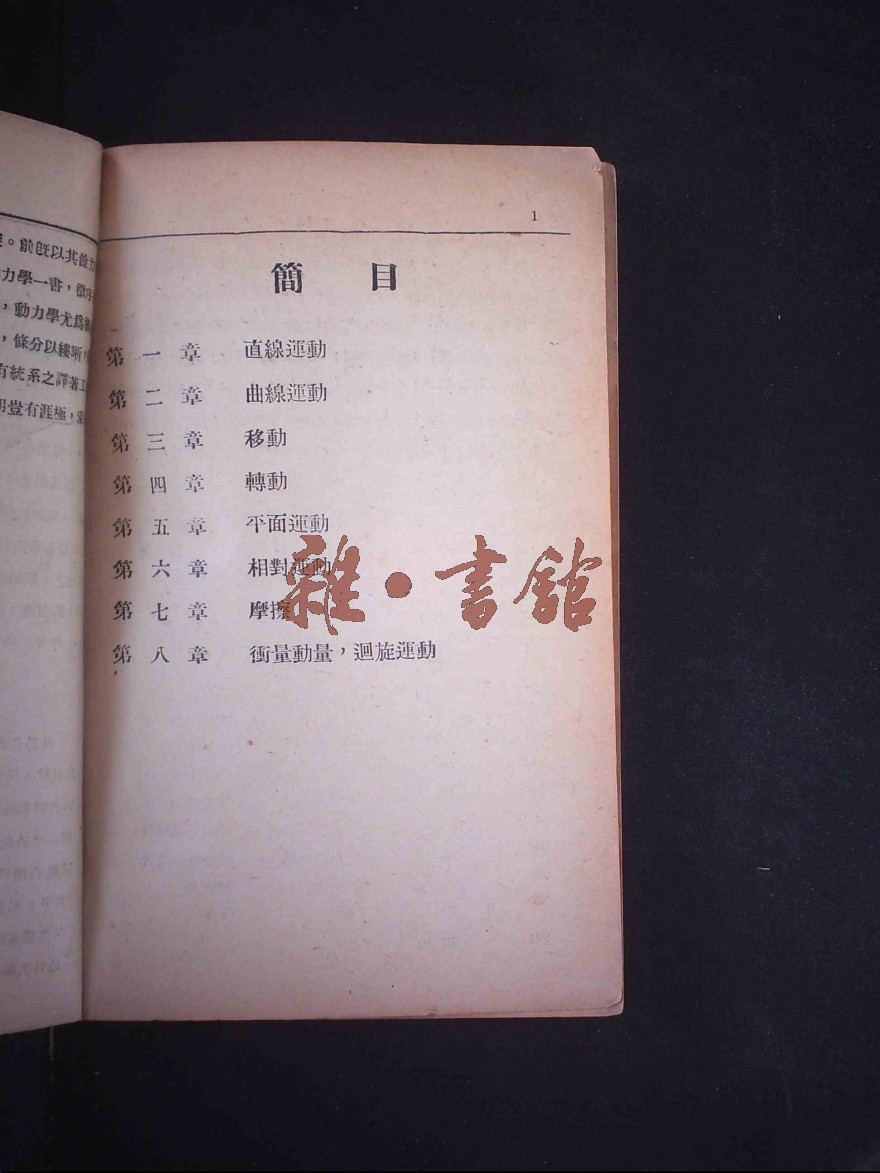 。前既以其餘力
力學一書，徵序
，動力學尤爲
，條分以縷晰
有統系之譯著
豈有涯極，
1
簡目
第一章 直線運動
第二章 曲線運動
第三章 移動
第四章 轉動
第五章 平面運動
第六章 相對運動
第七章 摩擦
第八章 衝量動量，迴旋運動
雜·書館